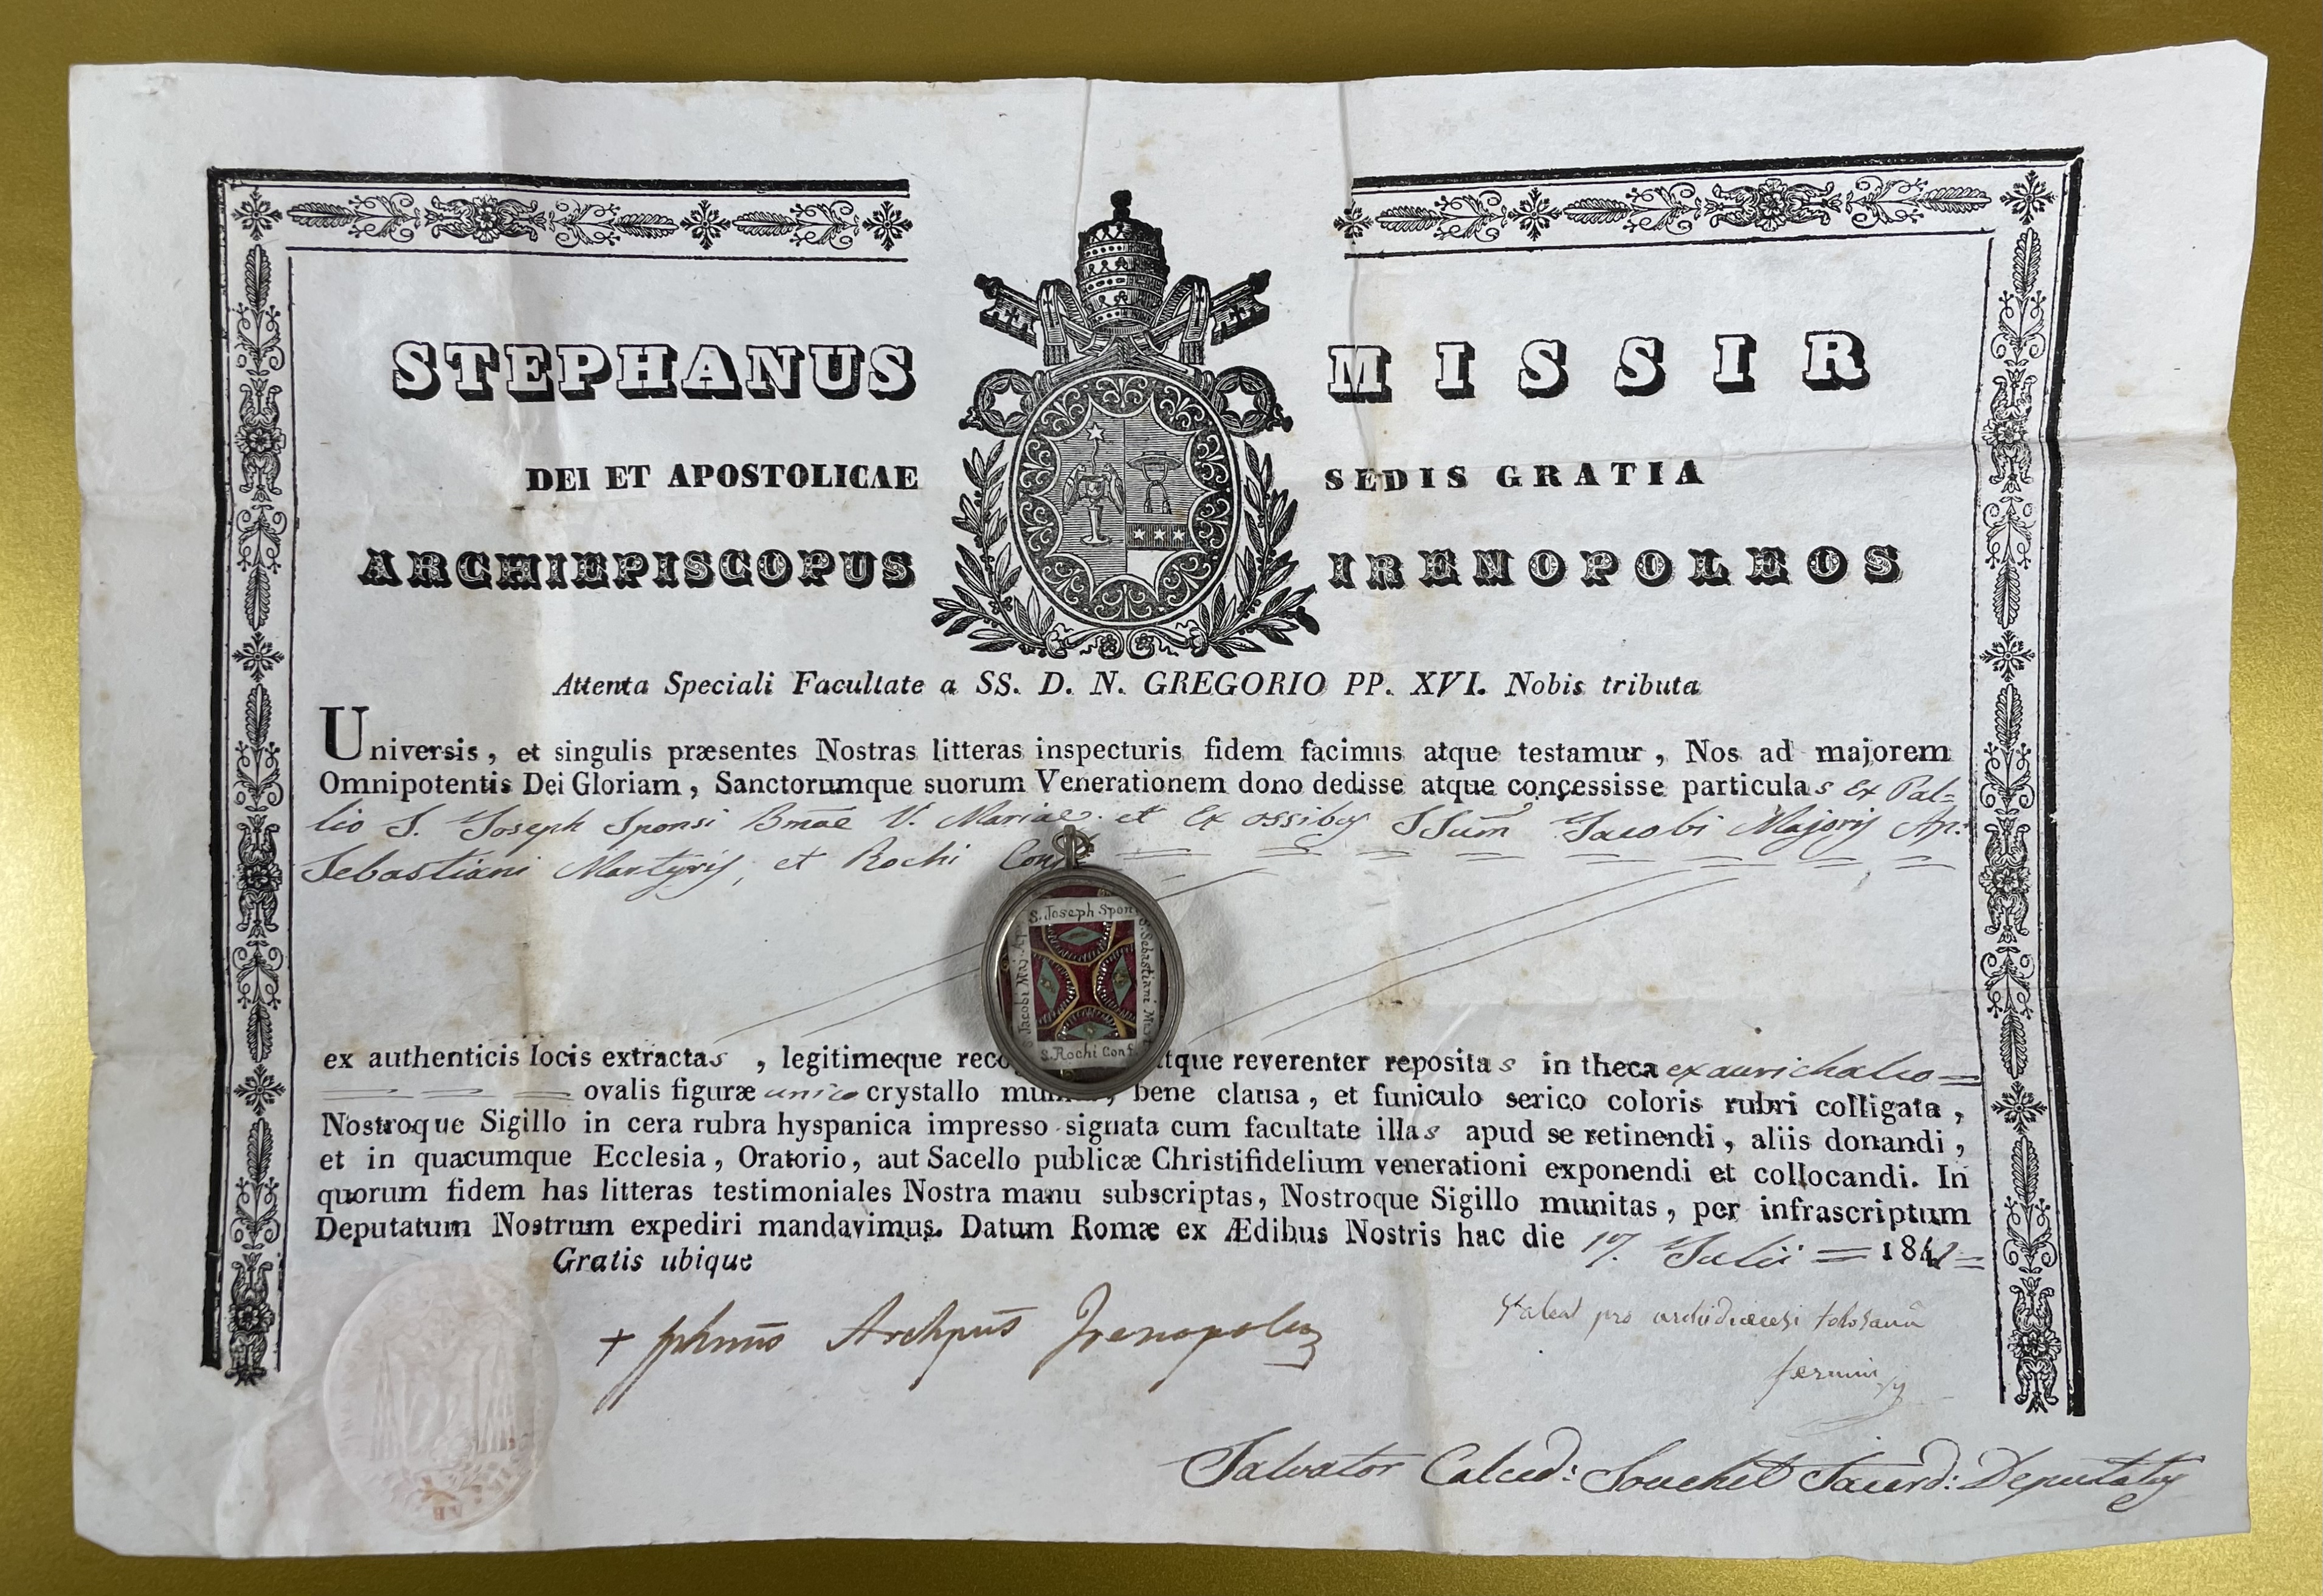 STEPHANUS MISSIR
DEI ET APOSTOLICAE SEDIS GRATIA
ARCHIEPISCOPUS IRENOPOLEOS
Attenta Speciali Facultate a SS. D. N. GREGORIO PP. XVI. Nobis tributa
Universis, et singulis præsentes Nostras litteras inspecturis fidem facimus atque testamur, Nos ad majorem
Omnipotentis Dei Gloriam, Sanctorumque suorum Venerationem dono dedisse atque concessisse particulas Ex Pal=
lio S. Joseph Sponsi Bmae V. Mariae. et Ex ossibus SSum Jacobi Majoris Ap.
Sebastiani Martyris, et Rochi Conf
S. Joseph Spon
S. Jacobi Maj. Ap
S. Sebastiani M
S. Rochi Conf.
ex authenticis locis extractas, legitimeque reco tque reverenter repositas in theca ex aurichalco =
ovalis figuræ unico crystallo mun, bene clausa, et funiculo serico coloris rubri colligata,
Nostroque Sigillo in cera rubra hyspanica impresso signata cum facultate illas apud se retinendi, aliis donandi,
et in quacumque Ecclesia, Oratorio, aut Sacello publicæ Christifidelium venerationi exponendi et collocandi. In
quorum fidem has litteras testimoniales Nostra manu subscriptas, Nostroque Sigillo munitas, per infrascriptum
Deputatum Nostrum expediri mandavimus. Datum Romæ ex Ædibus Nostris hac die 17. Julii =
Gratis ubique
+ Archpus Irenopolis
pro archidiocesi tolosana
Salvator Calced: Souchet Sacerd: Deputatus